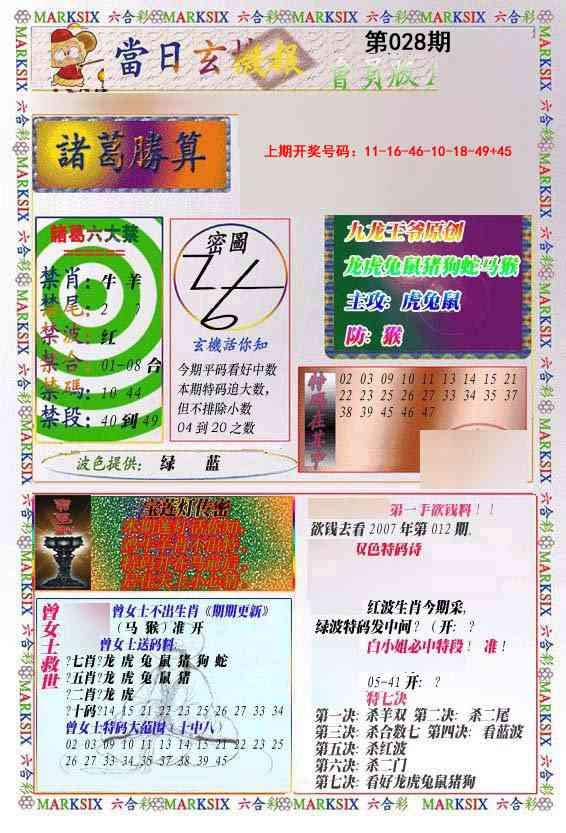 MARKSIX 六合彩 MARKSIX 六合彩 MARKSIX 六合彩 MARKSIX 六合彩 MARKSIX
當日玄機報
第028期
會員版
諸葛勝算
上期开奖号码：11-16-46-10-18-49+45
諸葛六大禁
禁肖：牛 羊
禁尾：2 ?
禁波：红
禁合：01-08 合
禁碼：10 44
禁段：40 到 49
密圖
玄機話你知
今期平码看好中数
本期特码追大数，
但不排除小数
04 到 20 之数
九龙王爷原创
龙虎兔鼠猪狗蛇马猴
主攻：虎兔鼠
防：猴
特碼在其中
02 03 09 10 11 13 14 15 21
22 23 25 26 27 33 34 35 37
38 39 45 46 47
波色提供：绿 蓝
宝莲灯传密
第一手欲钱料！！
欲钱去看 2007 年第 012 期。
双色特码诗
红波生肖今期采，
绿波特码发中间？（开：？
白小姐必中特段！ 准！
05-41 开：？
特七决
第一决：杀羊双 第二决：杀二尾
第三决：杀合数七 第四决：看蓝波
第五决：杀红波
第六决：杀二门
第七决：看好龙虎兔鼠猪狗
曾女士救世
曾女士不出生肖《期期更新》
（马 猴）准 开
曾女士送码料：
?七肖?龙 虎 兔 鼠 猪 狗 蛇
?五肖?龙 虎 兔 鼠 猪
?二肖?龙 虎
?十码?14 15 21 22 23 25 26 27 33 34
曾女士特码大范围（十中八）
02 03 09 10 11 13 14 15 21 22 23 25
26 27 33 34 35 37 38 39 45
MARKSIX 六合彩 MARKSIX 六合彩 MARKSIX 六合彩 MARKSIX 六合彩 MARKSIX